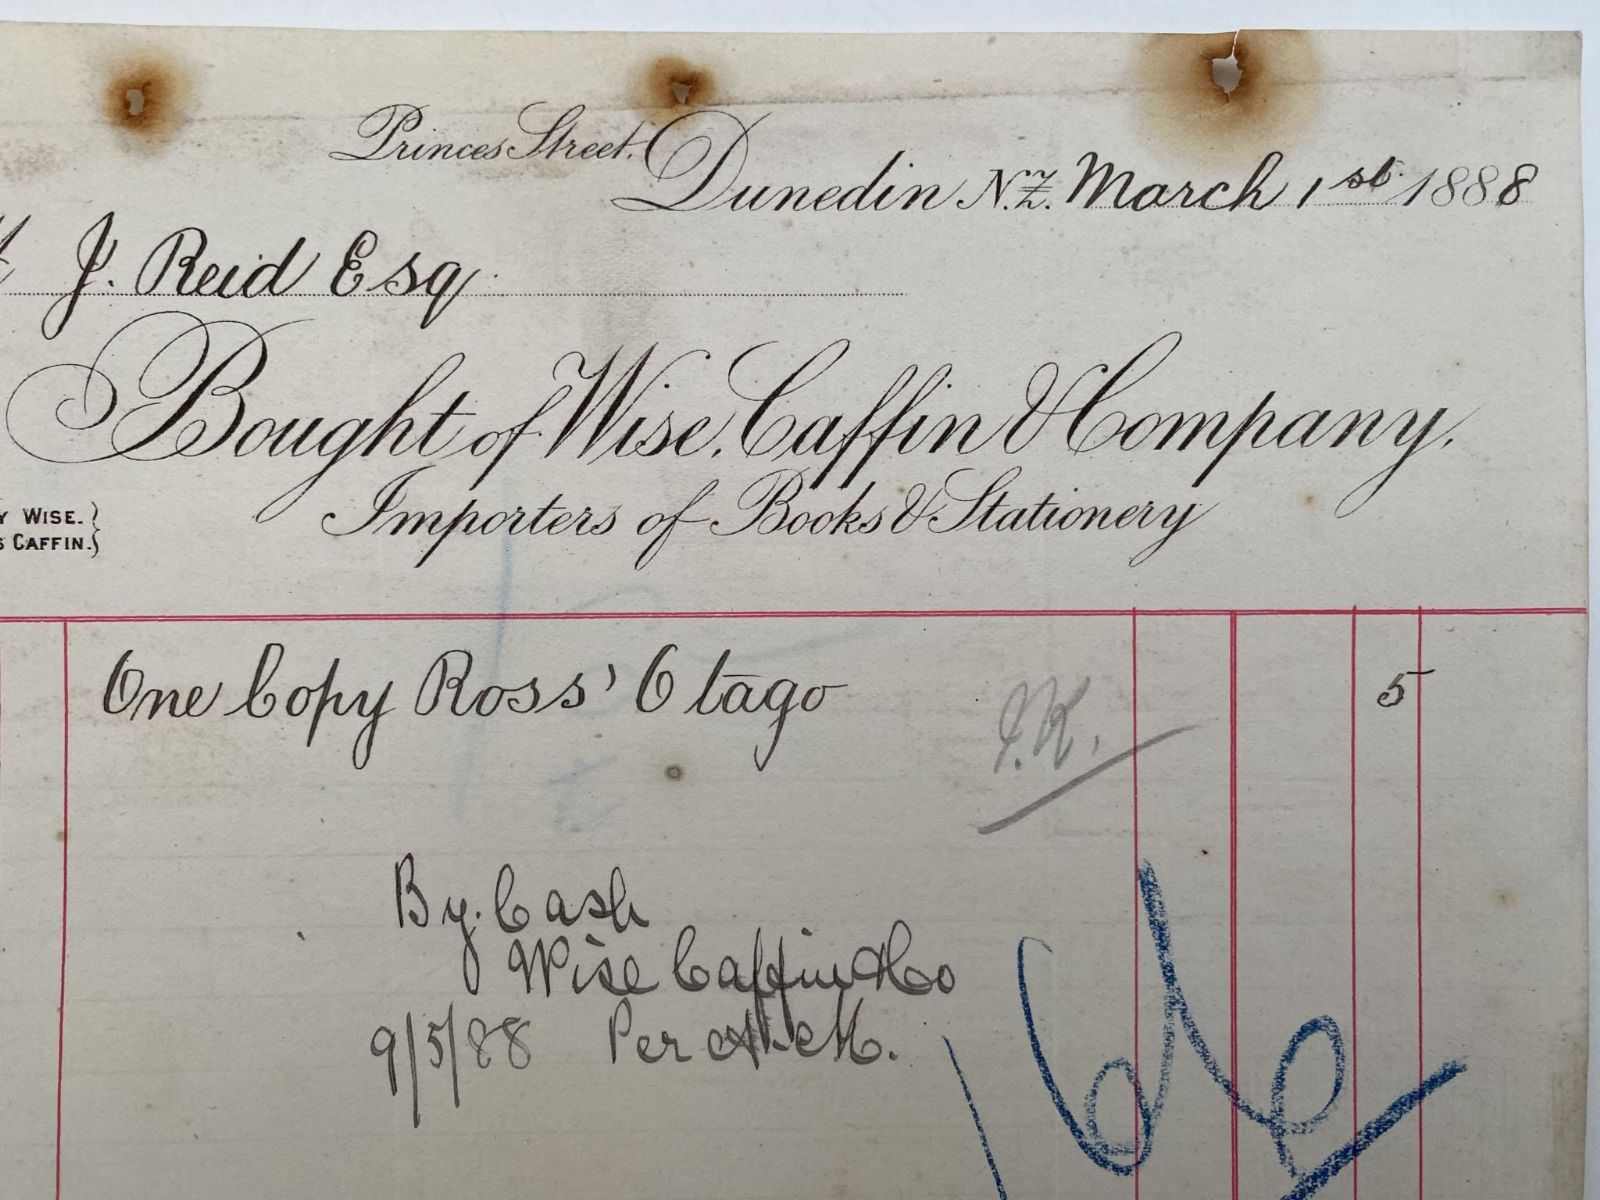 Princes Street.
Dunedin N.Z. March 1st. 1888
J. Reid Esq.
Bought of Wise, Caffin & Company,
Importers of Books & Stationery
WISE.
CAFFIN.
One Copy Ross' Otago 5
By Cash
Wise Caffin & Co
9/5/88 Per A. M.